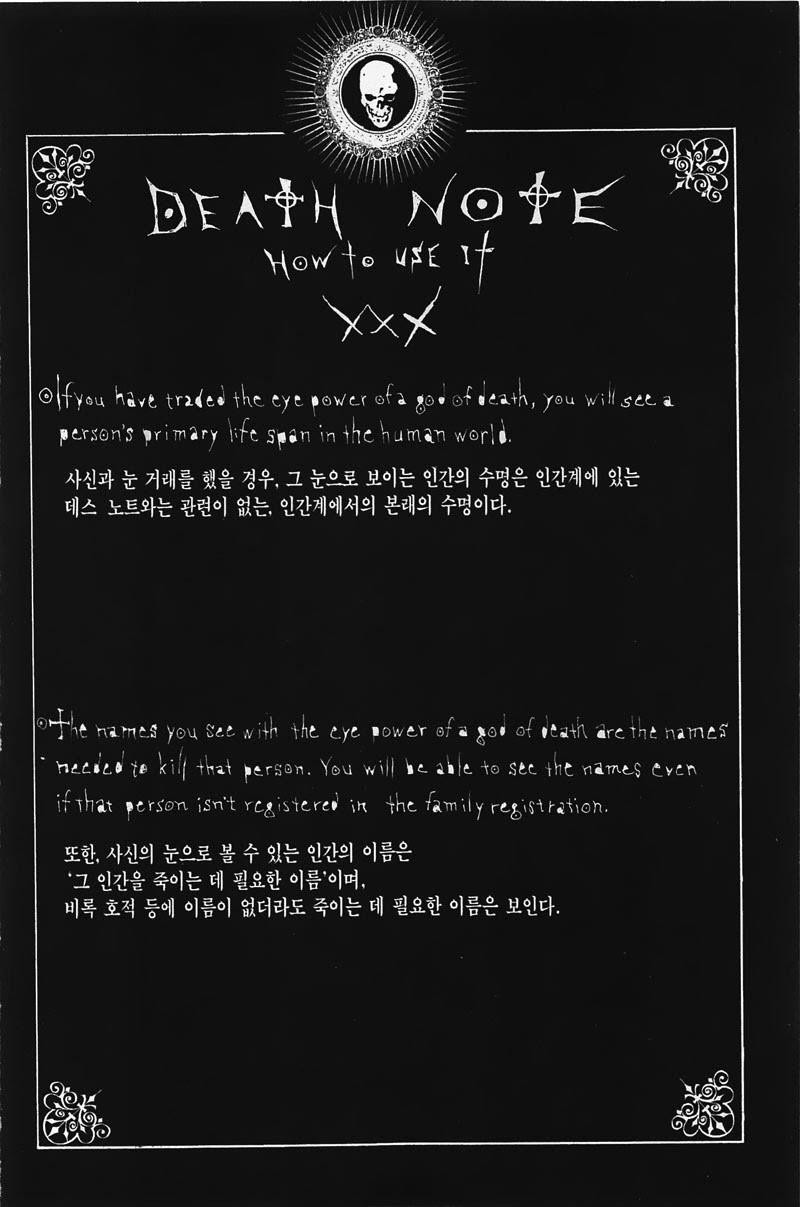 DEATH NOTE
HOW to USE It
XXX
If you have traded the eye power of a god of death, you will see a
person's primary life span in the human world.
사신과 눈 거래를 했을 경우, 그 눈으로 보이는 인간의 수명은 인간계에 있는
데스 노트와는 관련이 없는, 인간계에서의 본래의 수명이다.
The names you see with the eye power of a god of death are the names
needed to kill that person. You will be able to see the names even
if that person isn't registered in the family registration.
또한, 사신의 눈으로 볼 수 있는 인간의 이름은
‘그 인간을 죽이는 데 필요한 이름’이며,
비록 호적 등에 이름이 없더라도 죽이는 데 필요한 이름은 보인다.